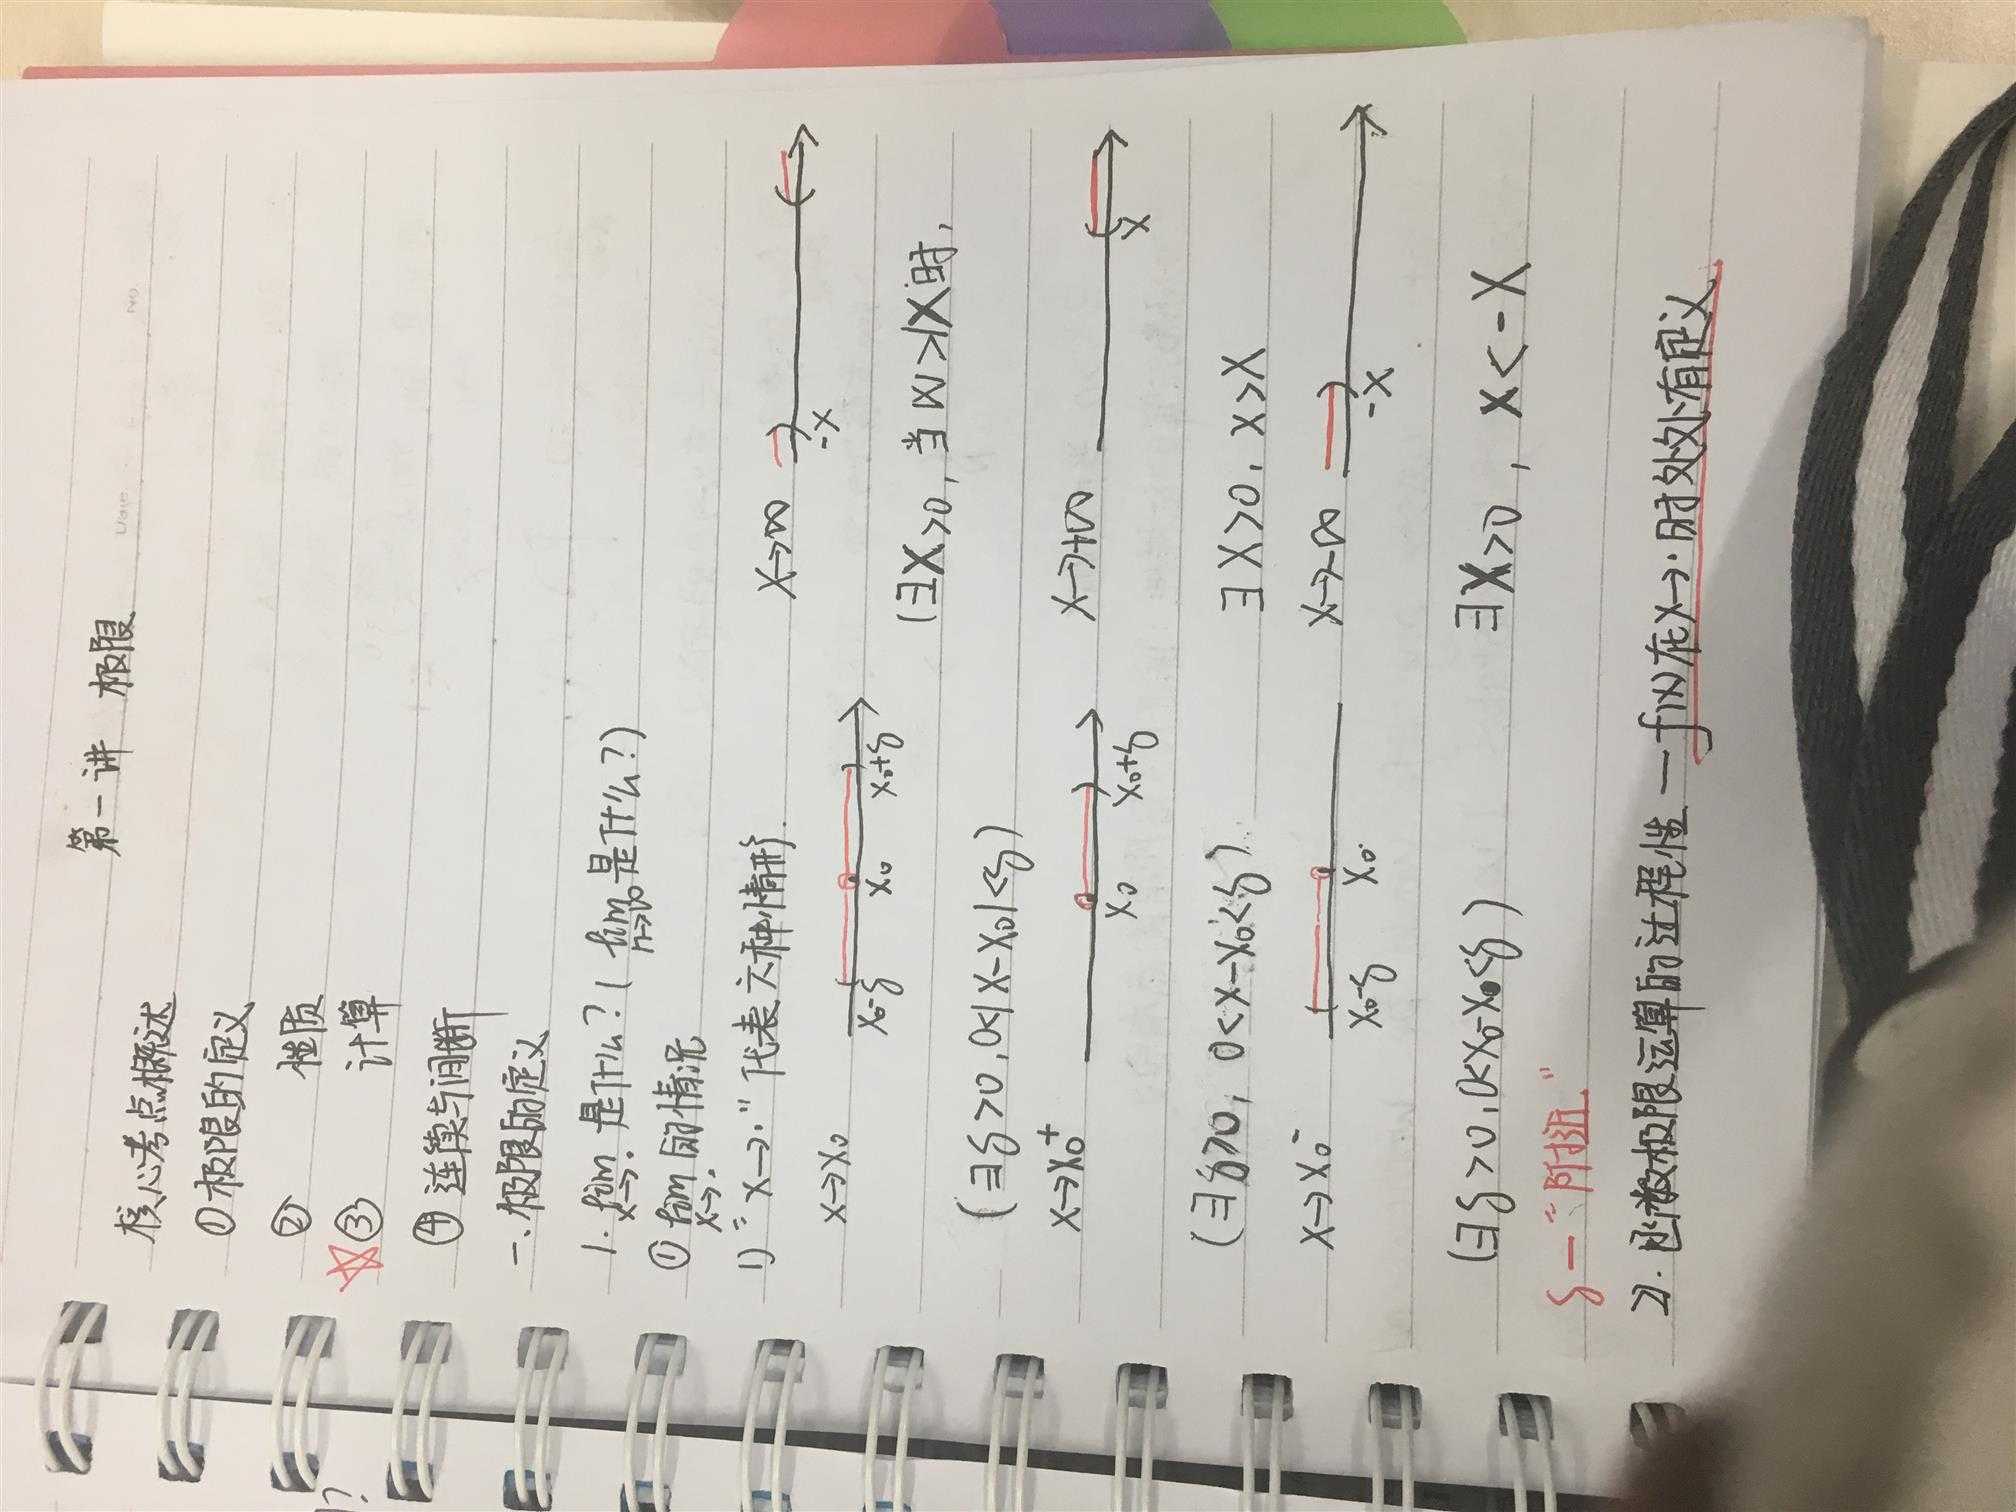 第一讲 极限
核心考点概述
①极限的定义
② 性质
☆③ 计算
④连续与间断
一.极限的定义
1. lim x→· 是什么?( lim n→∞ 是什么?)
① lim x→· 的情况
1) "x→·"代表六种情形.
x→x₀ x₀-δ x₀ x₀+δ
(∃δ>0,0<|x-x₀|<δ)
x→x₀⁺ x₀ x₀+δ
(∃δ>0, 0<x-x₀<δ)
x→x₀⁻ x₀-δ x₀
(∃δ>0,0<x₀-x<δ)
δ—"附近"
x→∞ -X
(∃X>0,当|x|>X时,
x→+∞ X
∃X>0, x>X
x→-∞ -X
∃X>0, x<-X
2). 函数极限运算的过程性 — f(x)在x→·时处处有定义